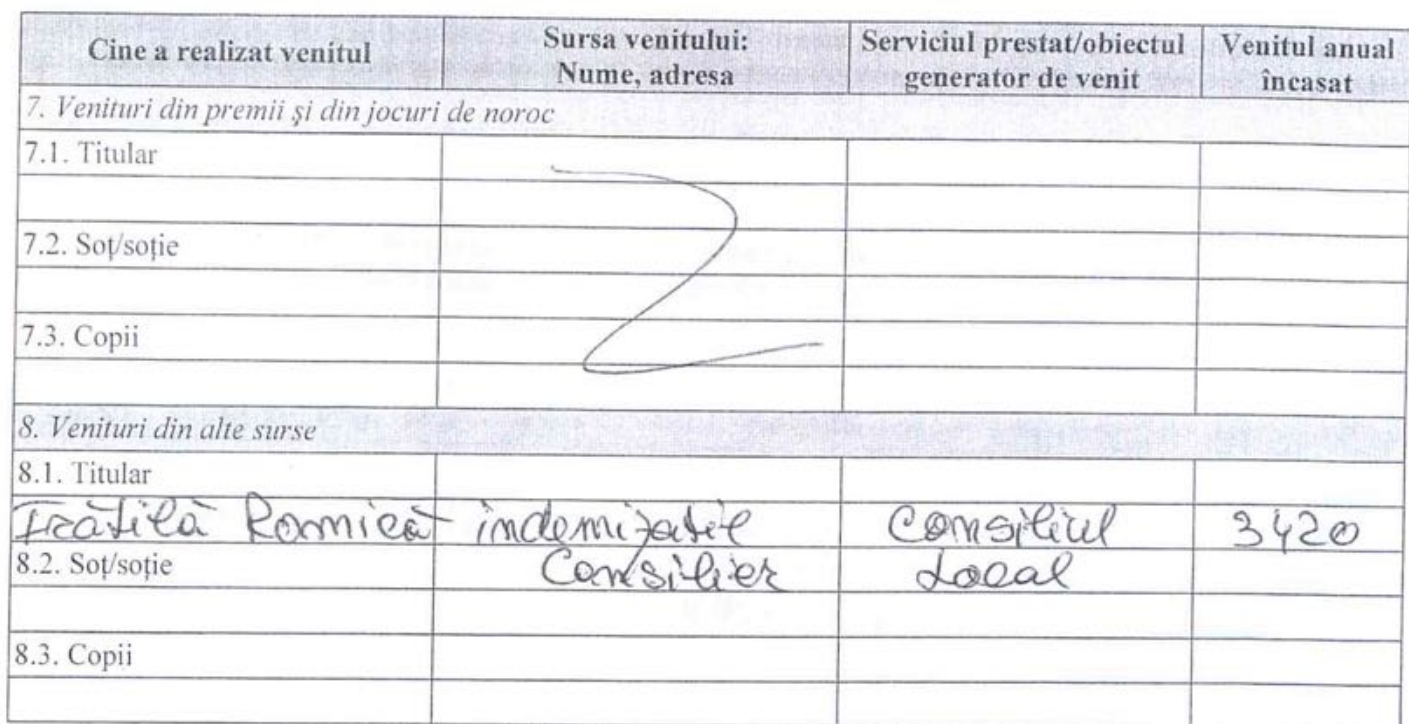 Cine a realizat venitul Sursa venitului: Nume, adresa Serviciul prestat/obiectul generator de venit Venitul anual încasat
7. Venituri din premii şi din jocuri de noroc
7.1. Titular
7.2. Soţ/soţie
7.3. Copii
8. Venituri din alte surse
8.1. Titular
Frătilă Romică indemizatie Consiliul 3420
8.2. Soţ/soţie Consilier Local
8.3. Copii